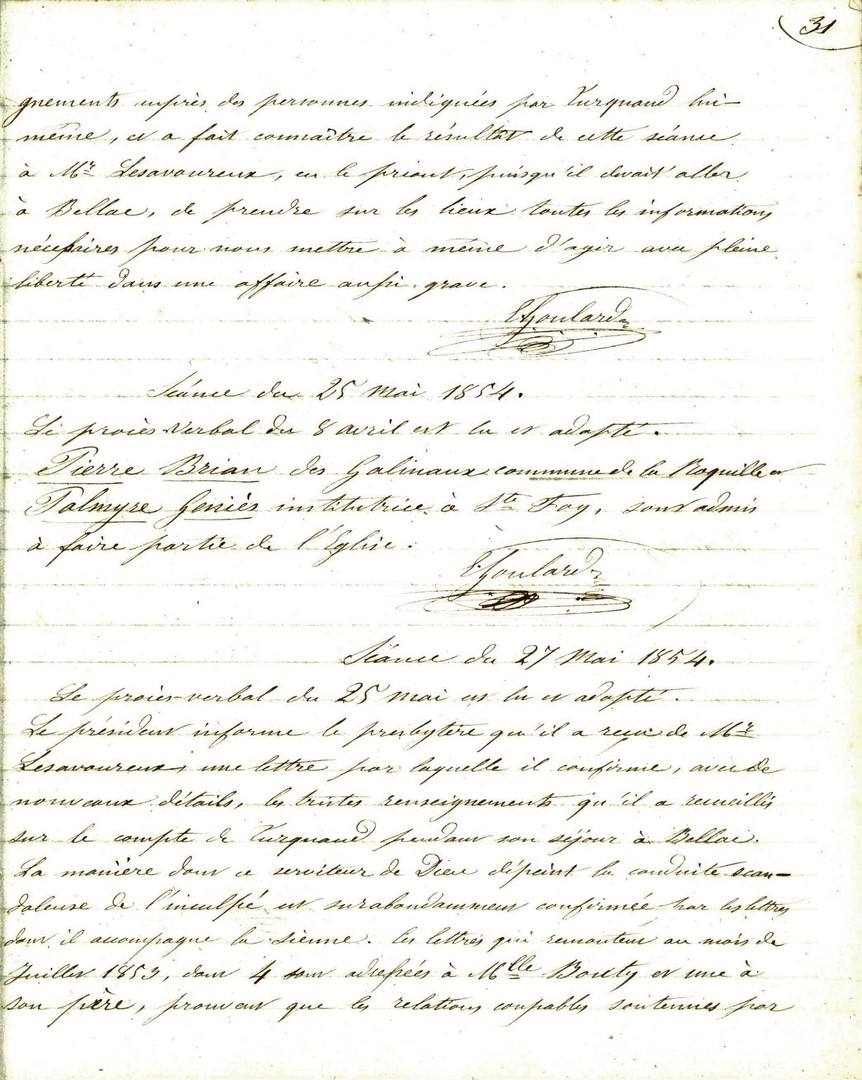 31
gnements auprès des personnes indiquées par Turquand lui-
même, et a fait connaître le résultat de cette séance
à Mr Lesavoureux, en le priant, puisqu'il devait aller
à Bellac, de prendre sur les lieux toutes les informations
nécessaires pour nous mettre à même d'agir avec pleine
liberté dans une affaire aussi grave.
Goulard
Séance du 25 Mai 1854.
Le procès-verbal du 8 avril est lu et adopté.
Pierre Brian des Galinaux commune de la Roquille et
Palmyre Geniès institutrice à Ste Foy, sont admis
à faire partie de l'Eglise.
Goulard
Séance du 27 Mai 1854.
Le procès-verbal du 25 mai est lu et adopté.
Le président informe le presbytère qu'il a reçu de Mr
Lesavoureux, une lettre par laquelle il confirme, avec de
nouveaux détails, les tristes renseignements qu'il a recueillis
sur le compte de Turquand pendant son séjour à Bellac.
La manière dont ce serviteur de Dieu dépeint la conduite scan-
daleuse de l'inculpé est surabondamment confirmée par les lettres
dont il accompagne la sienne. Ces lettres qui remontent au mois de
Juillet 1853, dont 4 sont adressées à Mlle Bouty et une à
son père, prouvent que les relations coupables soutenues par